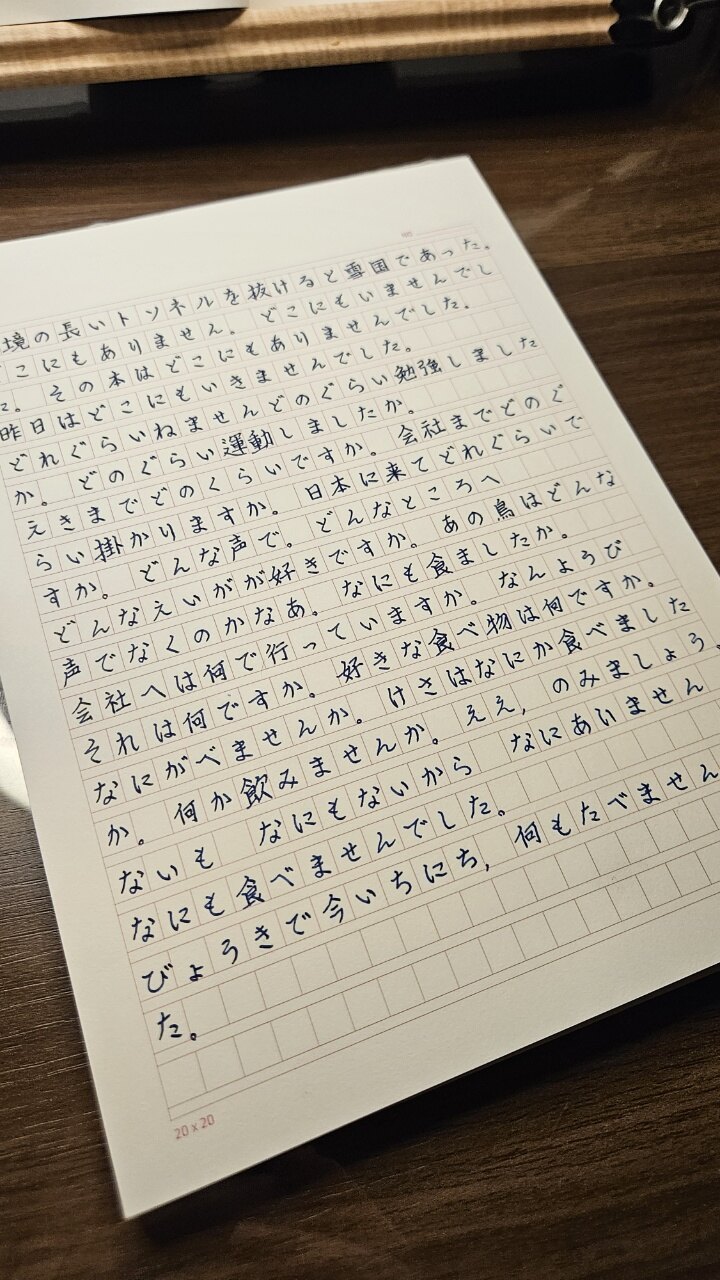 境の長いトンネルを抜けると雪国であった。
こにもありません。どこにもいませんでし
た。その本はどこにもありませんでした。
昨日はどこにもいきませんでした。
どれぐらいねませんどのぐらい勉強しました
か。どのぐらい運動しましたか。
えきまでどのくらいですか。会社までどのぐ
らい掛かりますか。日本に来てどれぐらいで
すか。どんな声で。どんなところへ
どんなえいがが好きですか。あの鳥はどんな
声でなくのかなあ。なにも食ましたか。
会社へは何で行っていますか。なんようび
それは何ですか。好きな食べ物は何ですか。
なにがべませんか。けさはなにか食べました
か。何か飲みませんか。ええ,のみましょう。
ないも なにもないから なにあいません
なにも食べませんでした。
びょうきで今いちにち,何もたべません
た。
20 x 20